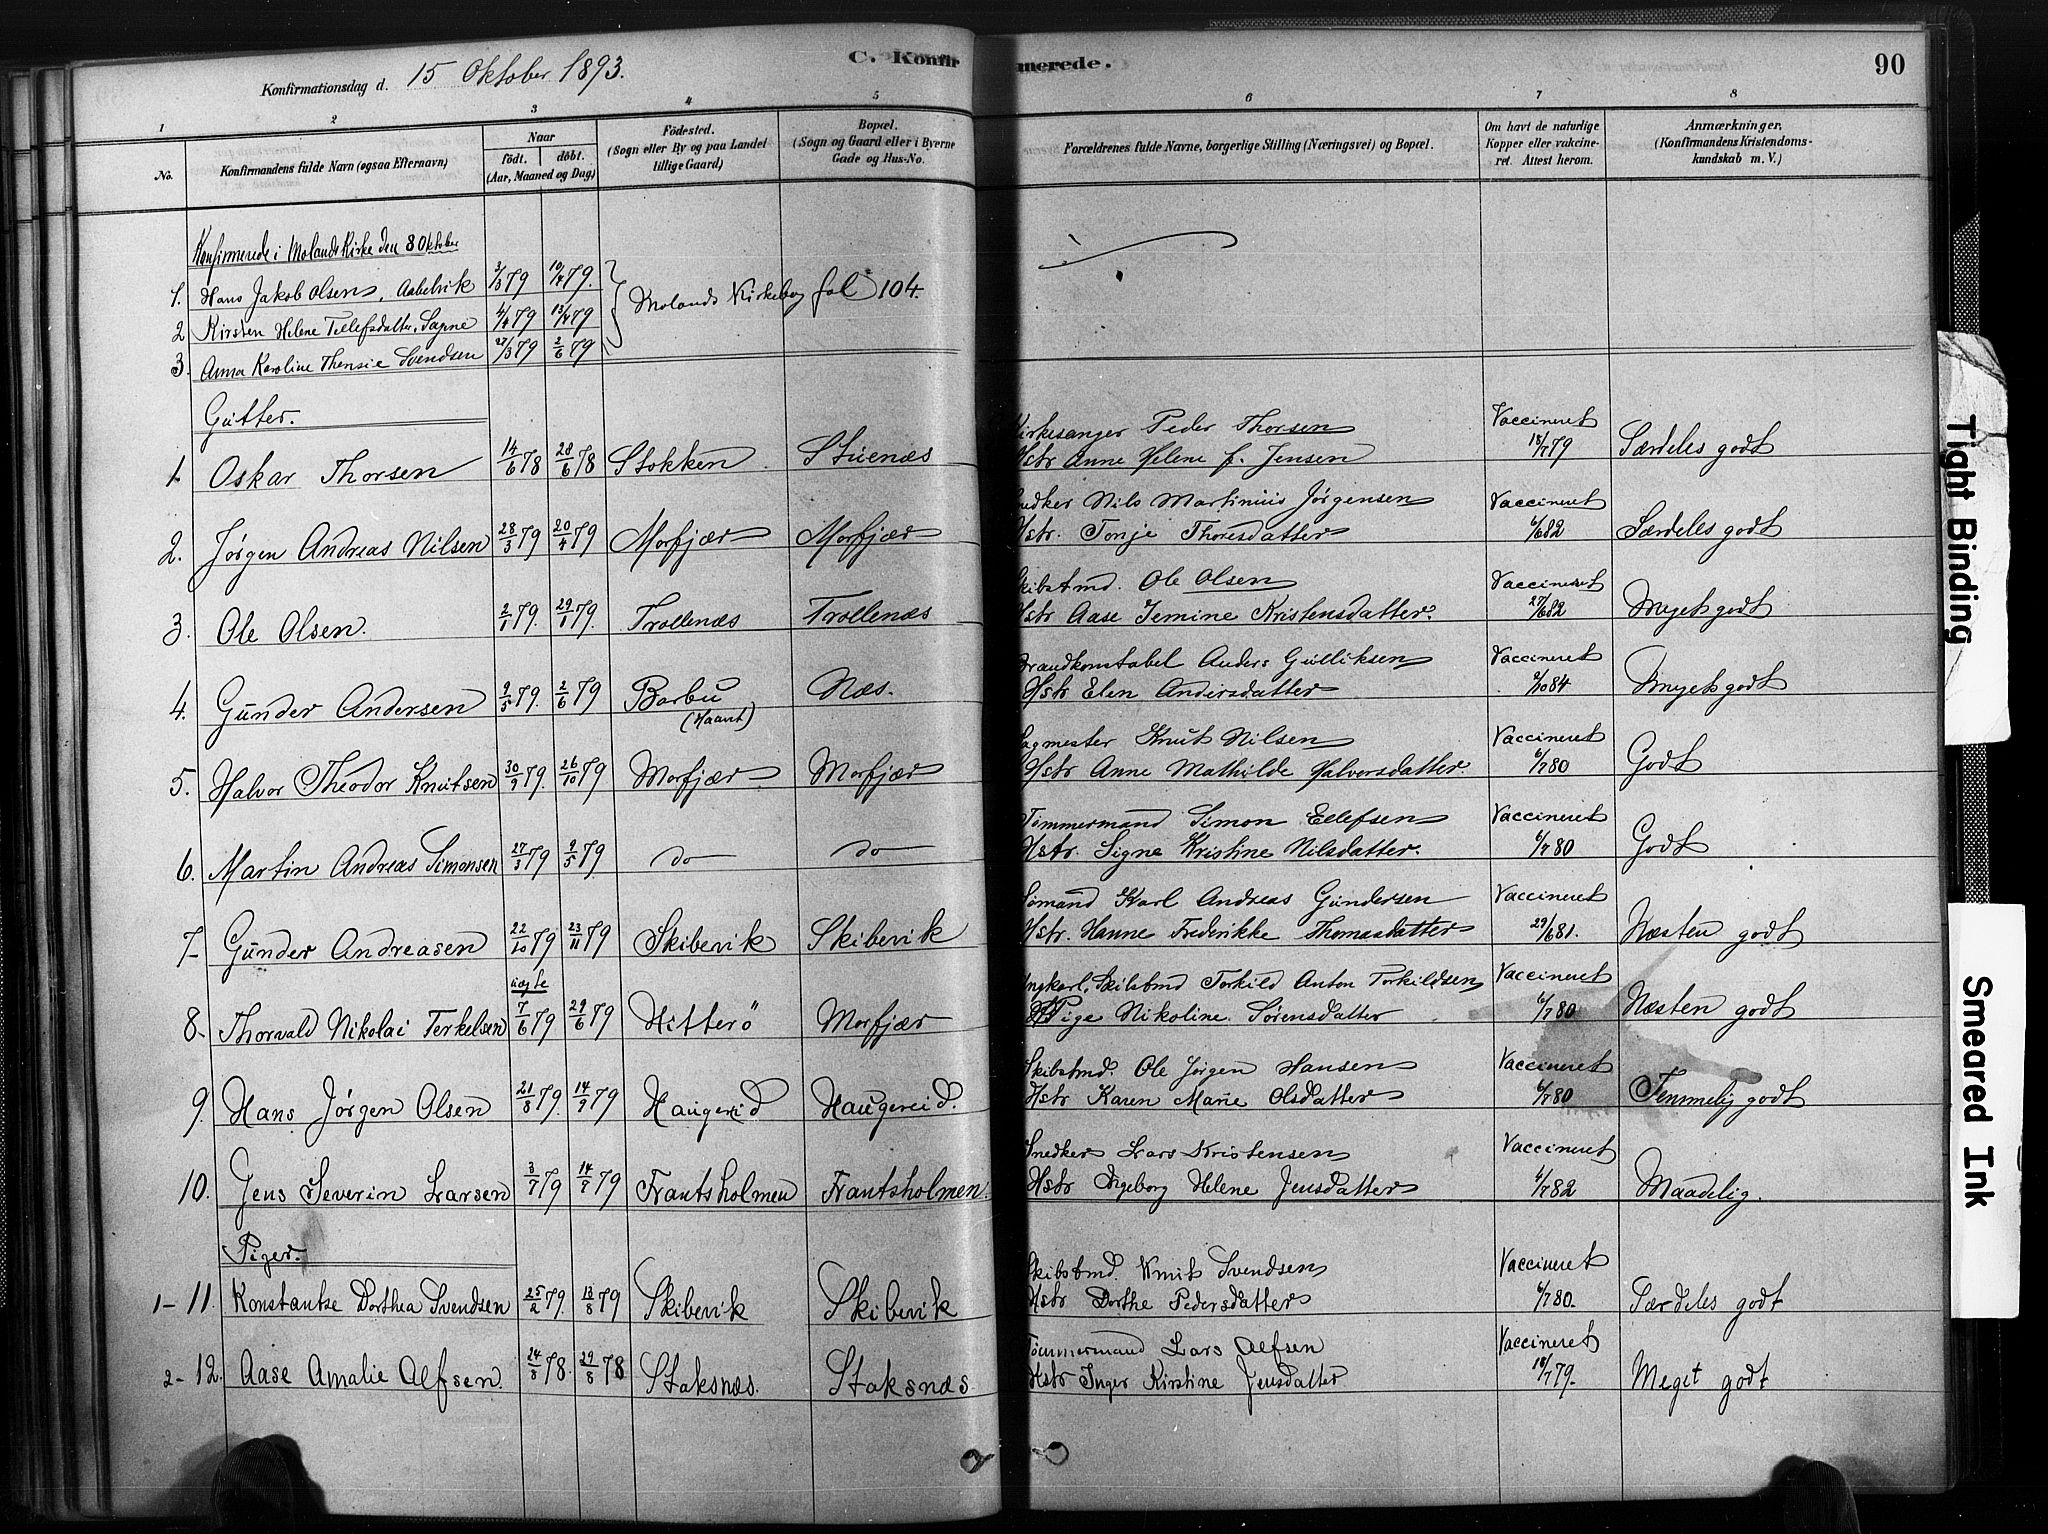 Konfirmationsdag d. 15 Oktober 1893.
C. Konfirmerede.
90
1 2 3 4 5 6 7 8
No.
Konfirmandens fulde Navn (ogsaa Efternavn)
Naar
födt. döbt.
(Aar, Maaned og Dag)
Födested.
(Sogn eller By og paa Landet
tillige Gaard)
Bopæl.
(Sogn og Gaard eller i Byerne
Gade og Hus-No.
Forældrenes fulde Navne, borgerlige Stilling (Næringsvei) og Bopæl.
Om havt de naturlige
Kopper eller vakcine-
ret. Attest herom.
Anmærkninger.
(Konfirmandens Kristendoms-
kundskab m. V.)
Konfirmerede i Molands Kirke den 8 Oktober
1. Hans Jakob Olsen, Aabelvik 3/3 79 10/4 79. Molands Kirkebog fol 104.
2 Kirsten Helene Tellefsdatter, Sagene 4/4 79 13/4 79
3. Anna Karoline Thensie Svendsen 22/3 79 2/6 79
Gutter.
1. Oskar Thorsen 14/6 78 28/6 78 Stokken Stuenæs
Kirkesanger Peder Thorsen
Hstr Anne Helene f. Jensen
Vaccineret
18/7 79
Særdeles godt
2. Jørgen Andreas Nilsen 28/3 79 20/4 79 Morfjær Morfjær
Snedker Nils Martinius Jørgensen
Hstr. Tonje Thoresdatter
Vaccineret
6/6 82
Særdeles godt
3. Ole Olsen. 2/1 79. 29/1 79. Trollenæs Trollenæs
Skibstmd. Ole Olsen
Hstr Aase Jemine Kristensdatter.
Vaccineret
27/6 82
Myek godt
4. Gunder Andersen 9/5 79. 2/6 79 Barbu Næs.
(Haant)
Brandkonstabel Anders Gulliksen
Hstr Elen Andersdatter
Vaccineret
9/10 84
Myek godt
5. Halvor Theodor Knutsen 30/9 79. 26/10 79 Morfjær Morfjær
Sagmester Knut Nilsen
Hstr Anne Mathilde Halvorsdatter.
Vaccineret
6/7 80
Godt
6. Martin Andreas Simonsen 27/3 79 9/5 79 do do
Tømmermand Simon Ellefsen
Hstr. Signe Kristine Nilsdatter.
Vaccineret
6/7 80
Godt
7- Gunder Andreasen 22/10 79 23/11 79 Skibevik Skibevik
Sømand Karl Andreas Gundersen
Hstr. Hanne Frederikke Thomasdatter
Vaccineret
29/6 81.
Næsten godt
uægte
8. Thorvald Nikolai Terkelsen 7/6 79 29/6 79 Hitterö Morfjær
Ungkarl, Skibstmd Torkild Anton Torkildsen
Pige Nikoline Sørensdatter
Vaccineret
6/7 80
Næsten godt
9. Hans Jørgen Olsen 21/8 79. 14/9 79 Haugereid Haugereid.
Skibstmd. Ole Jørgen Hansen
Hstr Karen Marie Olsdatter
Vaccineret
6/7 80
Temmelig godt
10. Jens Severin Larsen 3/7 79 14/7 79 Frantsholmen Frantsholmen.
Snedker Lars Kristensen
Hstr Ingeborg Helene Jensdatter
Vaccineret
4/7 82
Maadelig.
Piger.
1- 11. Konstantse Dorthea Svendsen 25/2 79. 13/8 79 Skibevik Skibevik
Skibstmd. Knut Svendsen
Hstr Dorthe Pedersdatter
Vaccineret
6/7 80.
Særdeles godt
2- 12. Aase Amalie Alfsen. 24/8 78 29/8 78 Staksnæs. Staksnæs
Tømmermand Lars Alfsen
Hstr Inger Kirstine Jensdatter
Vaccineret
18/7 79.
Meget godt
Tight Binding
Smeared Ink